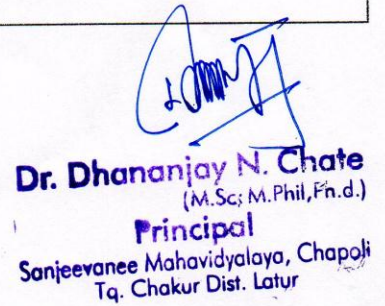 Dr. Dhananjay N. Chate
(M.Sc; M.Phil, Fn.d.)
Principal
Sanjeevanee Mahavidyalaya, Chapoli
Tq. Chakur Dist. Latur